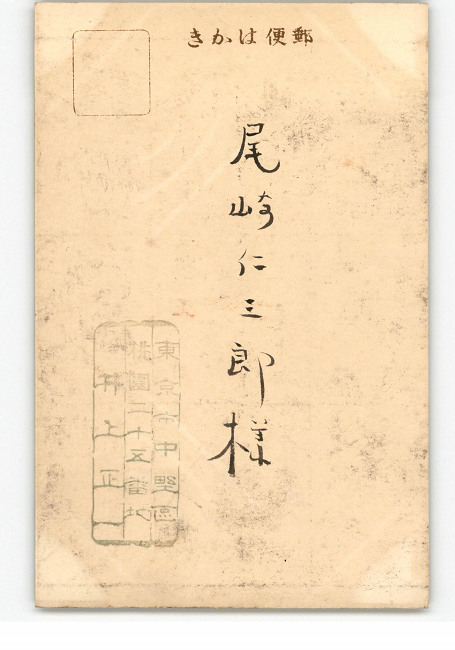 郵便はかき
尾崎仁三郎様
東京市中野區
桃園二十五番地
井上正一